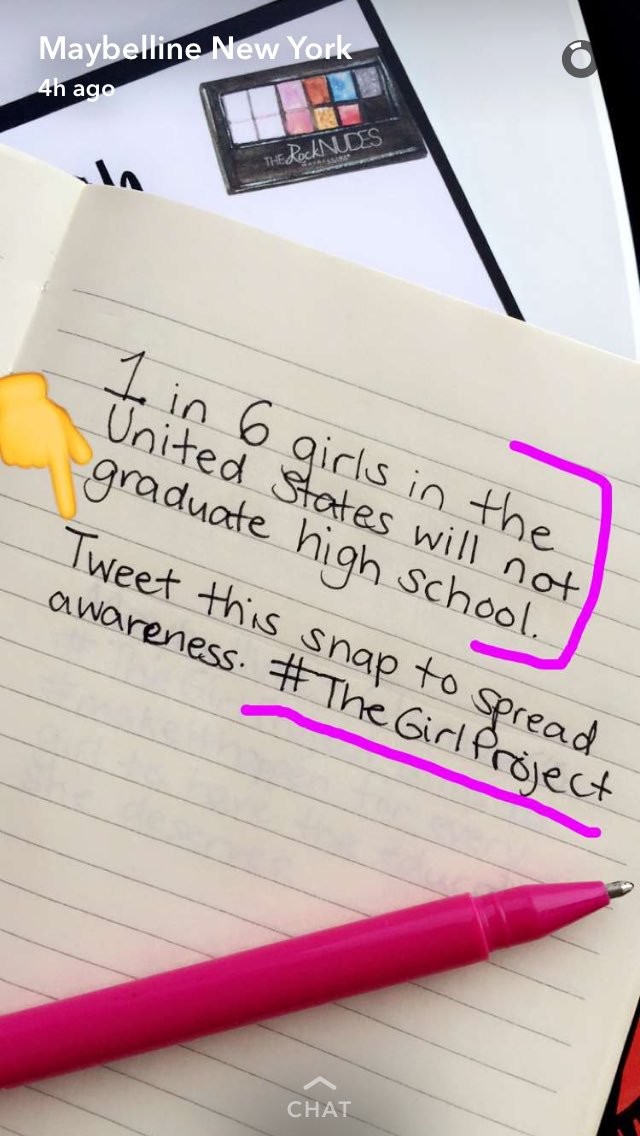 Maybelline New York
4h ago
THE Rock NUDES
MAYBELLINE
1 in 6 girls in the
United States will not
graduate high school.
Tweet this snap to spread
awareness. #TheGirlProject
CHAT